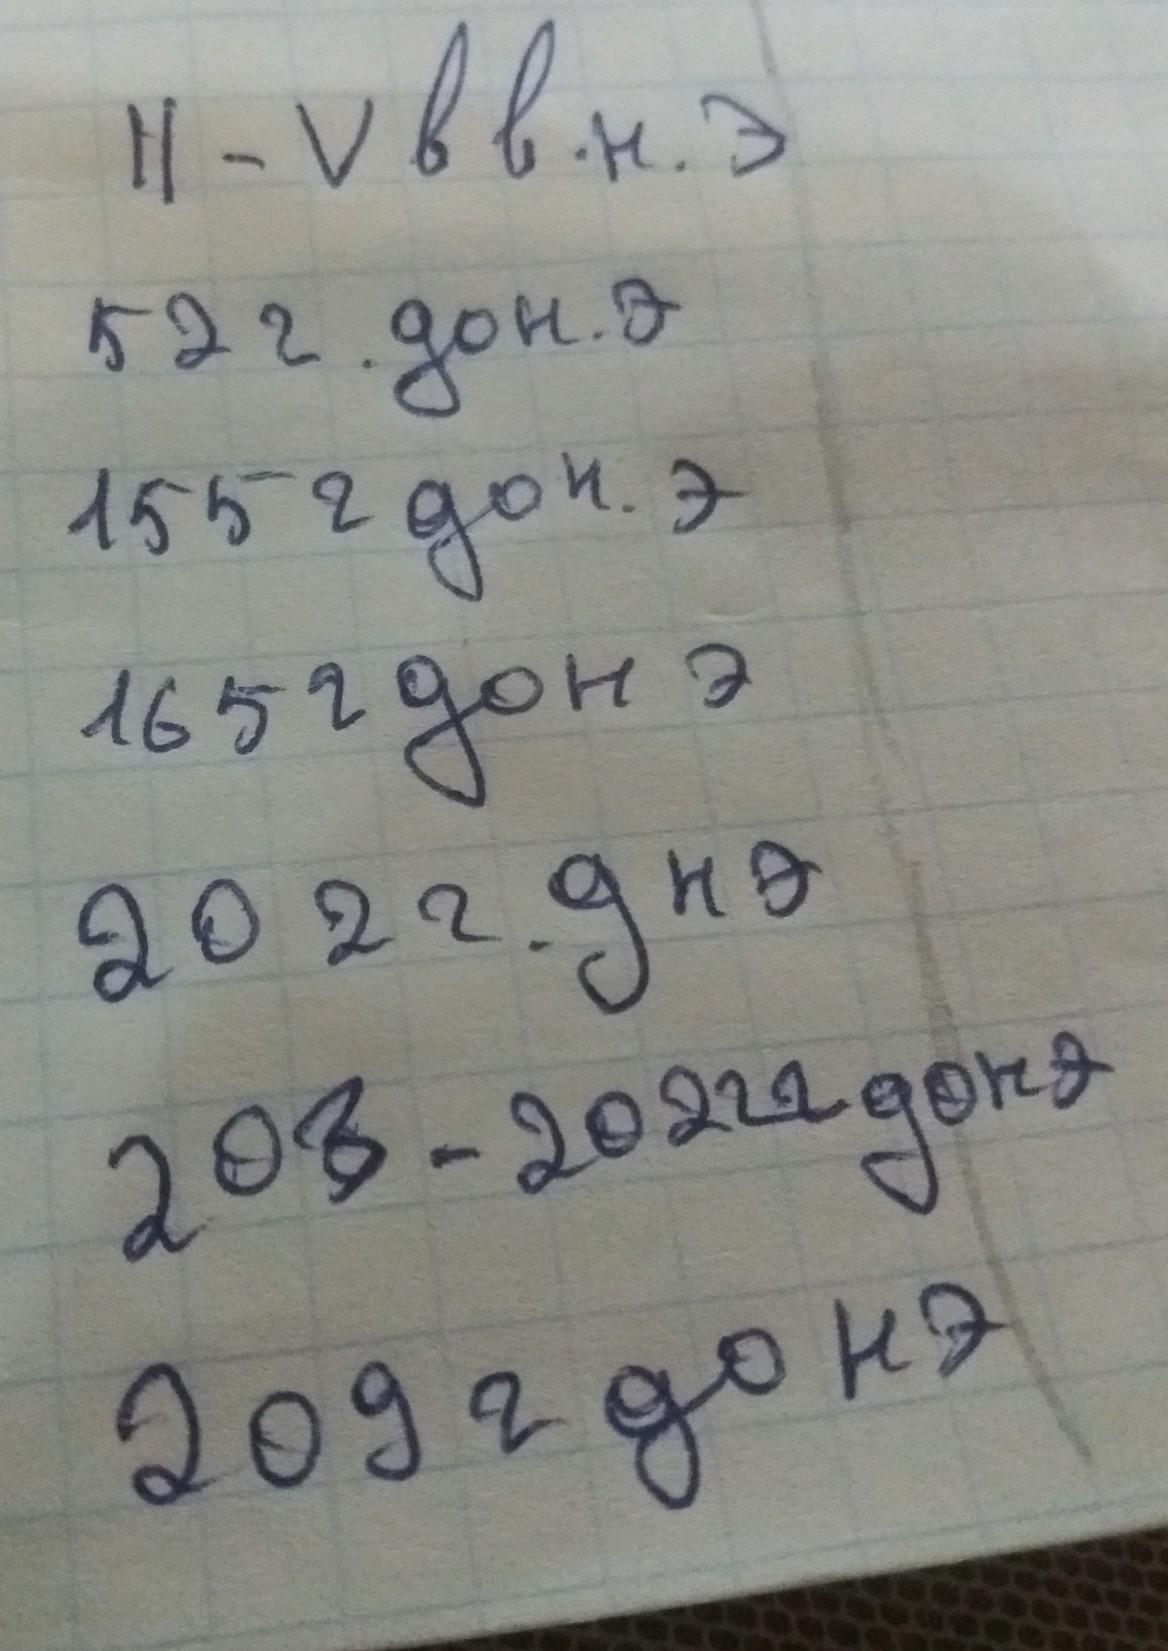 II - V в в. н. э
52 г. до н. э
155 г до н. э
165 г до н э
202 г. д н э
203 - 202 г г до н э
209 г до н э